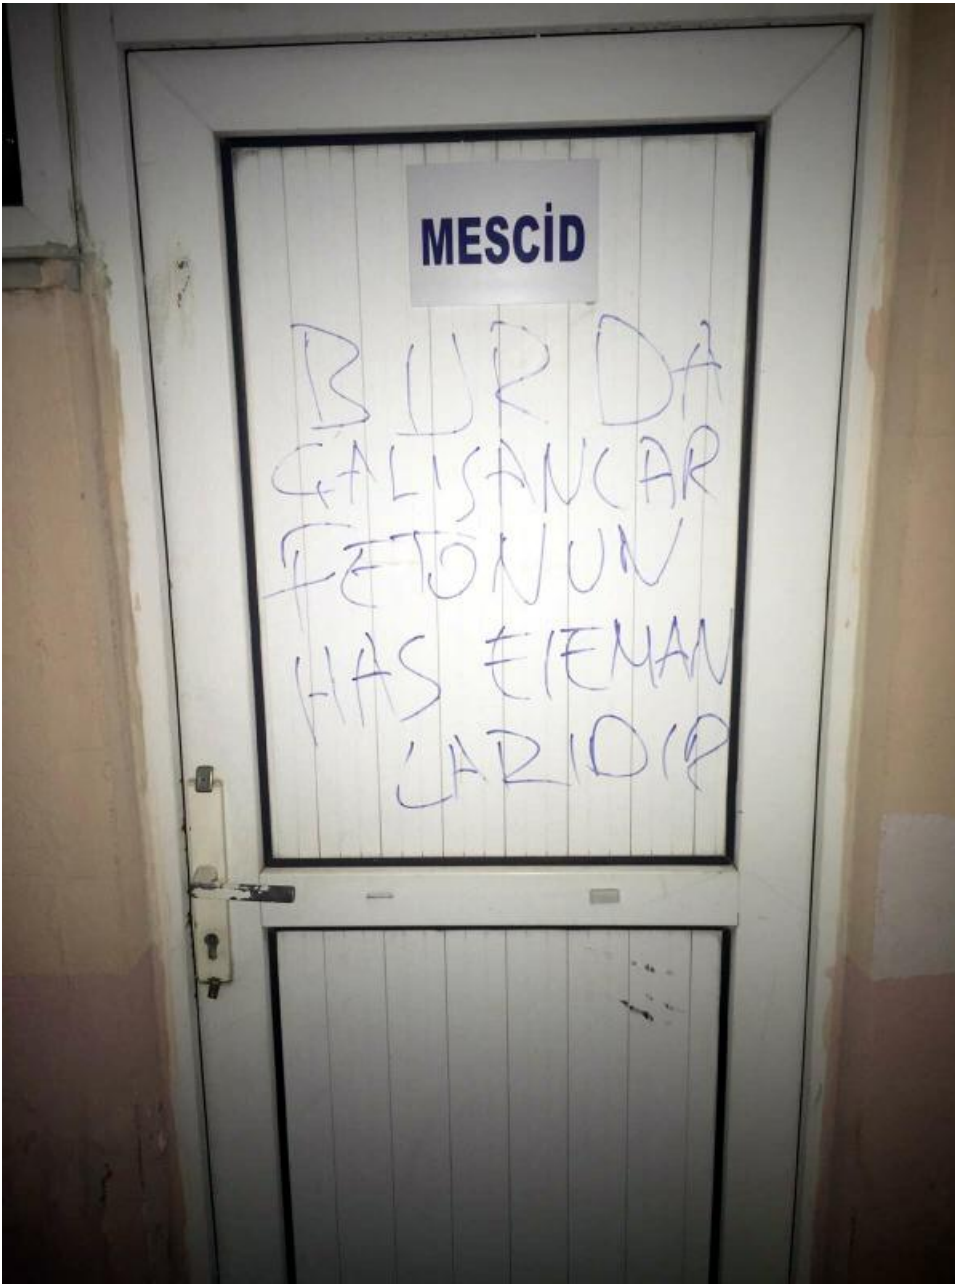 MESCİD
BURDA
ÇALIŞANLAR
FETÖNUN
HAS ElEMAN
LARIDIR